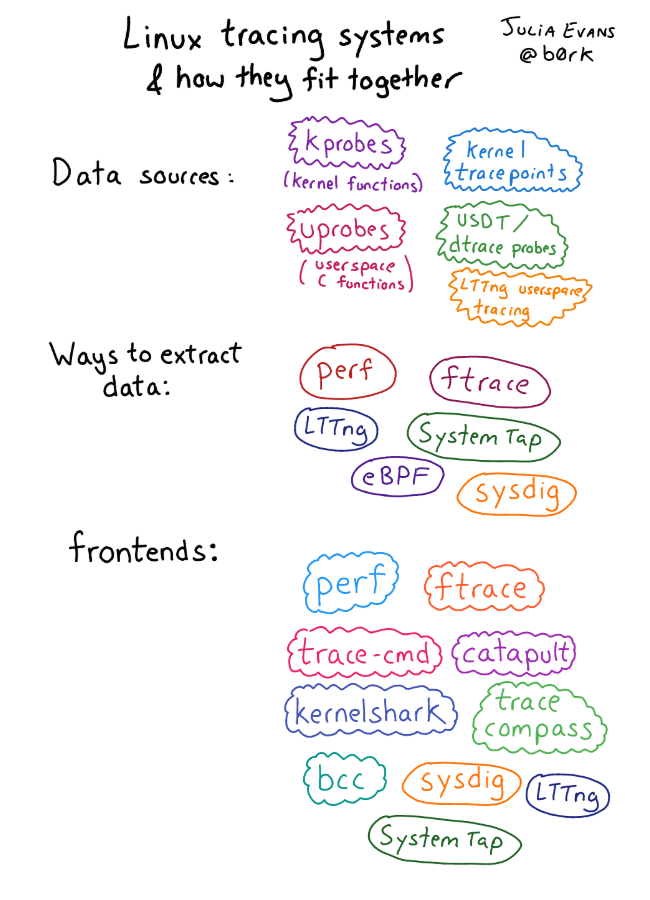 Linux tracing systems
& how they fit together
JULIA EVANS
@b0rk
Data sources:
kprobes
(kernel functions)
kernel
tracepoints
uprobes
(userspace
C functions)
USDT/
dtrace probes
LTTng userspace
tracing
Ways to extract
data:
perf
ftrace
LTTng
SystemTap
eBPF
sysdig
frontends:
perf
ftrace
trace-cmd
catapult
kernelshark
trace
compass
bcc
sysdig
LTTng
SystemTap